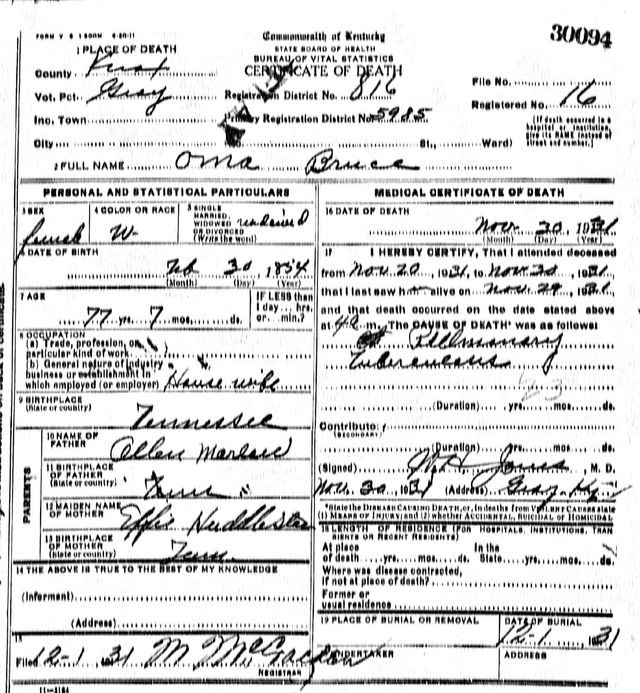 FORM V S 1 50M 6-30-11
Commonwealth of Kentucky
30094
STATE BOARD OF HEALTH
BUREAU OF VITAL STATISTICS
CERTIFICATE OF DEATH
1 PLACE OF DEATH
County Knox
Vot. Pct. Gray
Inc. Town
City
Registration District No. 816
Primary Registration District No. 5985
No. St., Ward)
File No.
Registered No. 16
(If death occurred in a
hospital or institution,
give its NAME instead of
street and number.)
2 FULL NAME Oma Bruce
PERSONAL AND STATISTICAL PARTICULARS
3 SEX
female
4 COLOR OR RACE
W
5 SINGLE
MARRIED,
WIDOWED
OR DIVORCED
(Write the word)
6 DATE OF BIRTH
Feb 30, 1854
(Month) (Day) (Year)
7 AGE
77 yrs. 7 mos. ds.
IF LESS than
1 day... hrs.
or... min.?
8 OCCUPATION
(a) Trade, profession, or
particular kind of work
(b) General nature of industry
business or establishment in
which employed (or employer) House wife
9 BIRTHPLACE
(State or country) Tennessee
PARENTS
10 NAME OF
FATHER Allen
11 BIRTHPLACE
OF FATHER
(State or country) Tenn
12 MAIDEN NAME
OF MOTHER Effie
13 BIRTHPLACE
OF MOTHER
(State or country) Tenn
14 THE ABOVE IS TRUE TO THE BEST OF MY KNOWLEDGE
(Informant)
(Address)
15
Filed 12-1, 1931 M.
REGISTRAR
11-3184
MEDICAL CERTIFICATE OF DEATH
16 DATE OF DEATH
Nov. 30, 1931
(Month) (Day) (Year)
17 I HEREBY CERTIFY, That I attended deceased
from Nov. 20, 1931, to Nov. 30, 1931
that I last saw h alive on Nov. 29, 1931
and that death occurred on the date stated above
at m. The CAUSE OF DEATH* was as follows
Pulmonary
Tuberculosis
23
(Duration) yrs. mos. ds.
Contributory
(SECONDARY)
(Duration) yrs. mos. ds.
(Signed) W.H. Jones, M. D.
Nov. 30, 1931 (Address) Gray, Ky.
*State the DISEASE CAUSING DEATH, or, in deaths from VIOLENT CAUSES state
(1) MEANS OF INJURY; and (2) whether ACCIDENTAL, SUICIDAL or HOMICIDAL
18 LENGTH OF RESIDENCE (FOR HOSPITALS, INSTITUTIONS, TRAN
SIENTS OR RECENT RESIDENTS)
At place In the
of death yrs. mos. ds. State yrs. mos. ds.
Where was disease contracted,
If not at place of death?
Former or
usual residence
19 PLACE OF BURIAL OR REMOVAL
DATE OF BURIAL
12-1, 1931
UNDERTAKER
ADDRESS